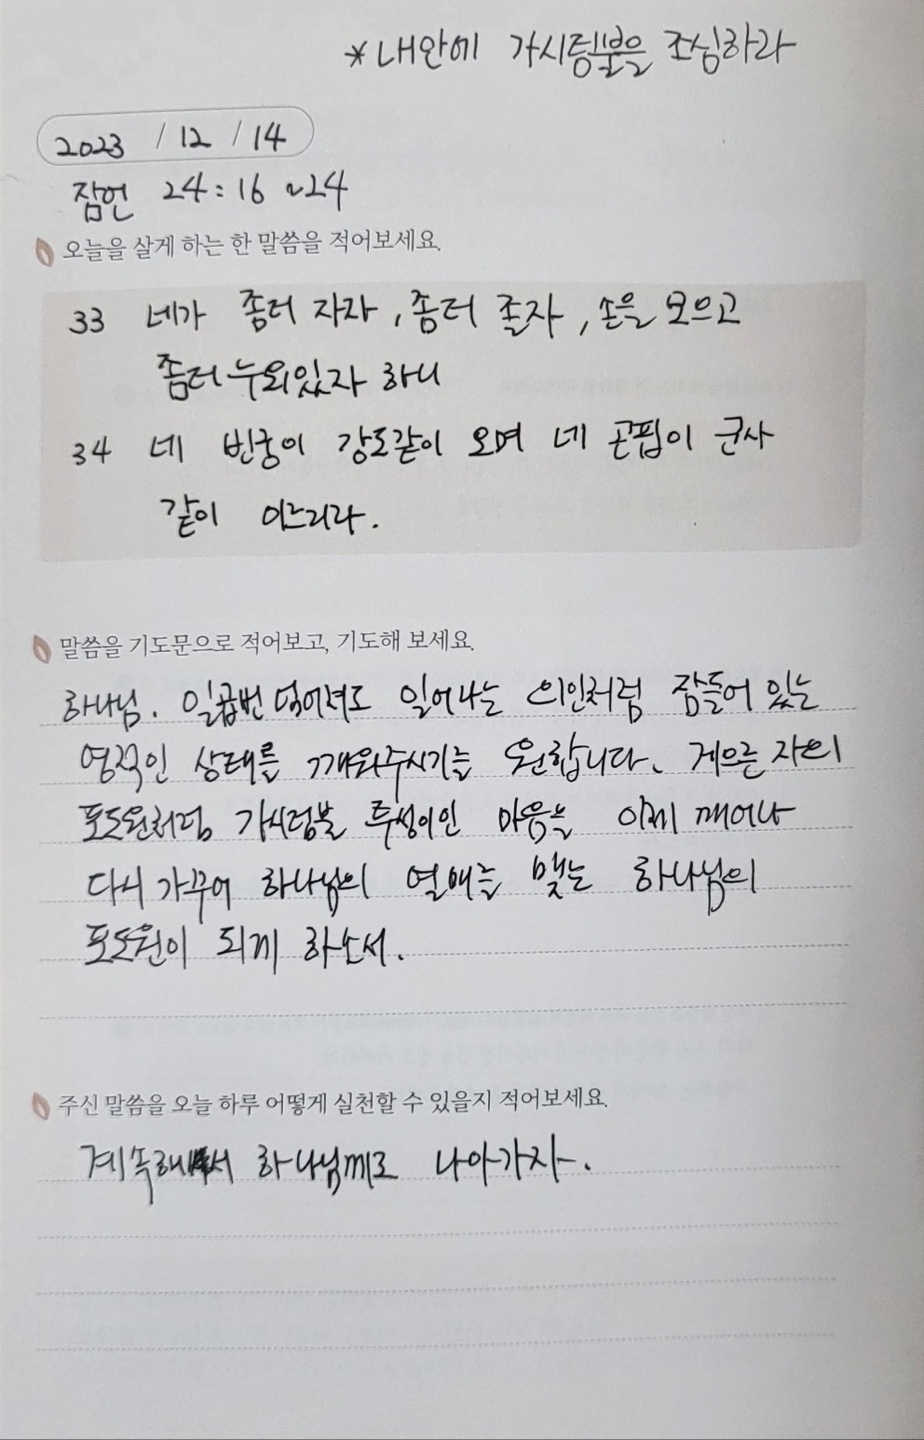 *내안에 가시텀불을 조심하라
2023 / 12 / 14
잠언 24:16 ~24
오늘을 살게 하는 한 말씀을 적어보세요.
33 네가 좀더 자자, 좀더 졸자, 손을 모으고
좀더 누워있자 하니
34 네 빈궁이 강도같이 오며 네 곤핍이 군사
같이 이르리라.
말씀을 기도문으로 적어보고, 기도해 보세요.
하나님. 일곱번 넘어져도 일어나는 의인처럼 잠들어 있는
영적인 상태를 깨워주시기를 원합니다. 게으른 자의
포도원처럼 가시덤불 투성이인 마음을 이제 깨어나
다시 가꾸어 하나님의 열매를 맺는 하나님의
포도원이 되게 하소서.
주신 말씀을 오늘 하루 어떻게 실천할 수 있을지 적어보세요.
계속해서 하나님께로 나아가자.